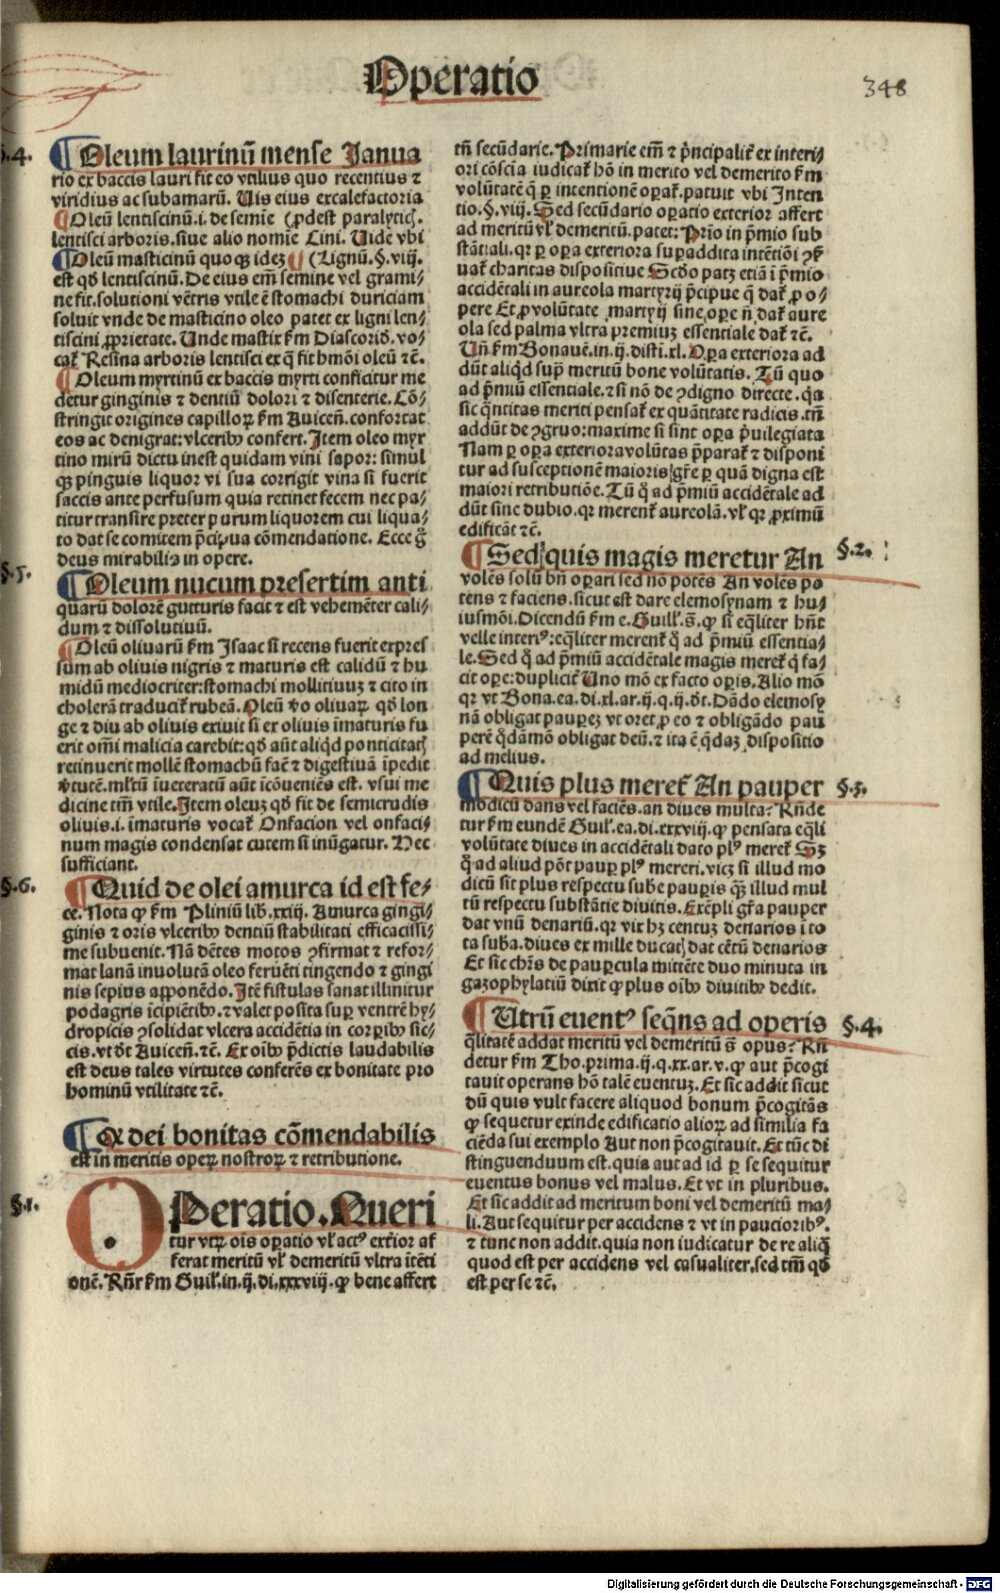 Operatio
348
§.4.
¶ Oleum laurinū mense Janua
rio ex baccis lauri fit eo vtilius quo recentius ⁊
viridius ac subamarū. Uis eius excalefactoria
¶ Oleū lentiscinū.i. de semīe (ꝓdest paralyticꝭ.
lentisci arboris.siue alio nomīe Cini. Uide vbi
¶ Oleū masticinū quoqꝫ ideꝫ ¶ (Lignū.§.viij.
est qđ lentiscinū. De eius em̄ semine vel grami⸗
ne fit.solutioni vētris vtile ē stomachi duriciam
soluit vnde de masticino oleo patet ex ligni len⸗
tiscini ꝓprietate. Unde mastix ẜm Diascorid̄. vo⸗
cat̄ Resina arboris lentisci ex q̄ fit hmōi oleū ⁊c̄.
¶ Oleum myrtinū ex baccis myrti conficitur me
detur ginginis ⁊ dentiū dolori ⁊ disenterie. Cō⸗
stringit origines capilloꝝ ẜm Auiceñ. confortat
eos ac denigrat: vlceribꝰ confert. Item oleo myr
tino mirū dictu inest quidam vini sapor: simul
qꝫ pinguis liquor vi sua corrigit vina si fuerit
saccis ante perfusum quia retinet fecem nec pa⸗
titur transire preter purum liquorem cui liqua⸗
to dat se comitem p̄cipua cōmendatione. Ecce ꝗ̄
deus mirabilis in opere.
§.5.
¶ Oleum nucum presertim anti
quarū dolorē gutturis facit ⁊ est vehemēter cali⸗
dum ⁊ dissolutiuū.
¶ Oleū oliuarū ẜm Isaac si recens fuerit expres
sum ab oliuis nigris ⁊ maturis est calidū ⁊ hu
midū mediocriter: stomachi mollitiuuꝫ ⁊ cito in
cholerā traducit̄ rubeā. Oleū v̄o oliuaꝝ qđ lon
ge ⁊ diu ab oliuis exiuit si ex oliuis īmaturis fu
erit om̄i malicia carebit: qđ aūt aliqd ponticitatꝭ
retinuerit mollē stomachū facit ⁊ digestiuā īpedit
v̄tutē. mltū īueteratū aūt īcōueniēs est. vsui me
dicine tm̄ vtile. Item oleuꝫ qđ fit de semicrudis
oliuis.i. īmaturis vocat̄ Onfacion vel onfaci⸗
num magis condensat cutem si inūgatur. Hec
sufficiant.
§.6.
¶ Quid de olei amurca id est fe⸗
ce. Nota ꝙ ẜm Pliniū lib. xxiij. Amurca gingi⸗
ginis ⁊ oris vlceribꝰ dentiū stabilitati efficacissi⸗
me subuenit. Nā dētes motos ꝯfirmat ⁊ refor⸗
mat lanā inuolutā oleo feruēti tingendo ⁊ gingi
nis sepius apponēdo. Itē fistulas sanat illinitur
podagris īcipiētibꝰ. ⁊ valet posita suꝑ ventrē hy⸗
dropicis ꝯsolidat vlcera accidētia in corꝑibꝰ sic⸗
cis. vt dīt Auiceñ. ⁊c̄. Ex oībꝰ p̄dictis laudabilis
est deus tales virtutes conferēs ex bonitate pro
hominū vtilitate ⁊c̄.
¶ Ex dei bonitas cōmendabilis
est in meritis opeꝝ nostroꝝ ⁊ retributione.
§.1.
OPeratio. Queri
tur vtꝝ oīs oꝑatio vl̓ actꝰ exterior af
ferat meritū vl̓ demeritū vltra ītēti
onē. Rn̄r ẜm Guil̓. in.ij.di.xxxviij. ꝙ bene affert
tn̄ secūdarie. Primarie em̄ ⁊ p̄ncipalit̄ ex interi⸗
ori cōscīa iudicat̄ hō in merito vel demerito ẜm
volūtatē q̄ ꝑ intentionē oꝑat̄. patuit vbi Inten
tio.§.viij. Sed secūdario oꝑatio exterior affert
ad meritū vl̓ demeritū. patet: Prīo in p̄mio sub
stātiali. qꝛ ꝑ oꝑa exteriora suꝑaddita intētiōi ꝯẜ
uat̄ charitas dispositiue Scd̄o patꝫ etiā ī p̄mio
accidētali in aureola martyrij p̄cipue q̄ dat̄ ꝓ o⸗
pere Et ꝓ volūtate martyrij sine oꝑe n̄ dat̄ aure
ola sed palma vltra premiuꝫ essentiale dat̄ ⁊c̄.
Un̄ ẜm Bonauē. in.ij. disti.xl. Oꝑa exteriora ad
dūt aliqd suꝑ meritū bone volūtatis. Tū quo
ad p̄miū essentiale. ⁊ si nō de ꝯdigno directe. qa
sic q̄ntitas meriti pensat̄ ex quātitate radicis. tn̄
addūt de ꝯgruo: maxime si sint oꝑa p̄uilegiata
Nam ꝑ oꝑa exteriora volūtas p̄parat̄ ⁊ disponi
tur ad susceptionē maioris gr̄e ꝑ quā digna est
maiori retributiōe. Tū q̄ ad p̄miū accidētale ad
dūt sine dubio. qꝛ merent̄ aureolā. vl̓ qꝛ ꝓximū
edificāt ⁊c̄.
§.2.
¶ Sed quis magis meretur An
volēs solū bn̄ oꝑari sed nō potēs An volēs po
tens ⁊ faciens. sicut est dare elemosynam ⁊ hu⸗
iusmōi. Dicendū ẜm e. Guill̓. s̄. ꝙ si eqliter hn̄t
velle interiꝰ: eqliter merent̄ q̄ ad p̄miū essentia⸗
le. Sed q̄ ad p̄miū accidētale magis meret̄ q̄ fa⸗
cit oꝑe: duplicit̄ Uno mō ex facto oꝑis. Alio mō
qꝛ vt Bona. ea. di.xl.ar.ij.q.ij.dt̄. Dādo elemosy
nā obligat pauꝑeꝫ vt oret ꝓ eo ⁊ obligādo pau
perē q̄dāmō obligat deū. ⁊ ita ē q̄daꝫ dispositio
ad melius.
§.3.
¶ Quis plus meret̄ An pauper
modicū dans vel faciēs. an diues multa? Rn̄de
tur ẜm eundē Guil̓. ea. di.xxxviij. ꝙ pensata eq̄li
volūtate diues in accidētali dato plꝰ meret̄ Sꝫ
q̄ ad aliud pōt pauꝑ plꝰ mereri. vicꝫ si illud mo
dicū sit plus respectu sube pauꝑis qꝫ̄ illud mul
tū respectu substātie diuitis. Exēpli gr̄a pauper
dat vnū denariū. qꝛ vix hꝫ centuꝫ denarios ī to
ta suba. diues ex mille ducatꝭ dat cētū denarios
Et sic chr̄s de pauꝑcula mittēte duo minuta in
gazophylatiū dixit ꝙ plus oībꝰ diuitibꝰ dedit.
§.4.
¶ Utrū euentꝰ seq̄ns ad operis
q̄litatē addat meritū vel demeritū s̄ opus? Rn̄
detur ẜm Tho. prima.ij.q.xx.ar.v. ꝙ aut p̄cogi
tauit operans hō talē euentuꝫ. Et sic addit sicut
dū quis vult facere aliquod bonum p̄cogitās
ꝙ sequetur exinde edificatio alioꝝ ad similia fa
ciēda sui exemplo Aut non p̄cogitauit. Et tūc di
stinguenduum est. quia aut ad id ꝑ se sequitur
euentus bonus vel malus. Et vt in pluribus.
Et sic addit ad meritum boni vel demeritū ma⸗
li. Aut sequitur per accidens ⁊ vt in pauciioribꝰ.
⁊ tunc non addit. quia non iudicatur de re aliq̄
quod est per accidens vel casualiter. sed tm̄ qđ
est per se ⁊c̄.
Digitalisierung gefördert durch die Deutsche Forschungsgemeinschaft - DFG